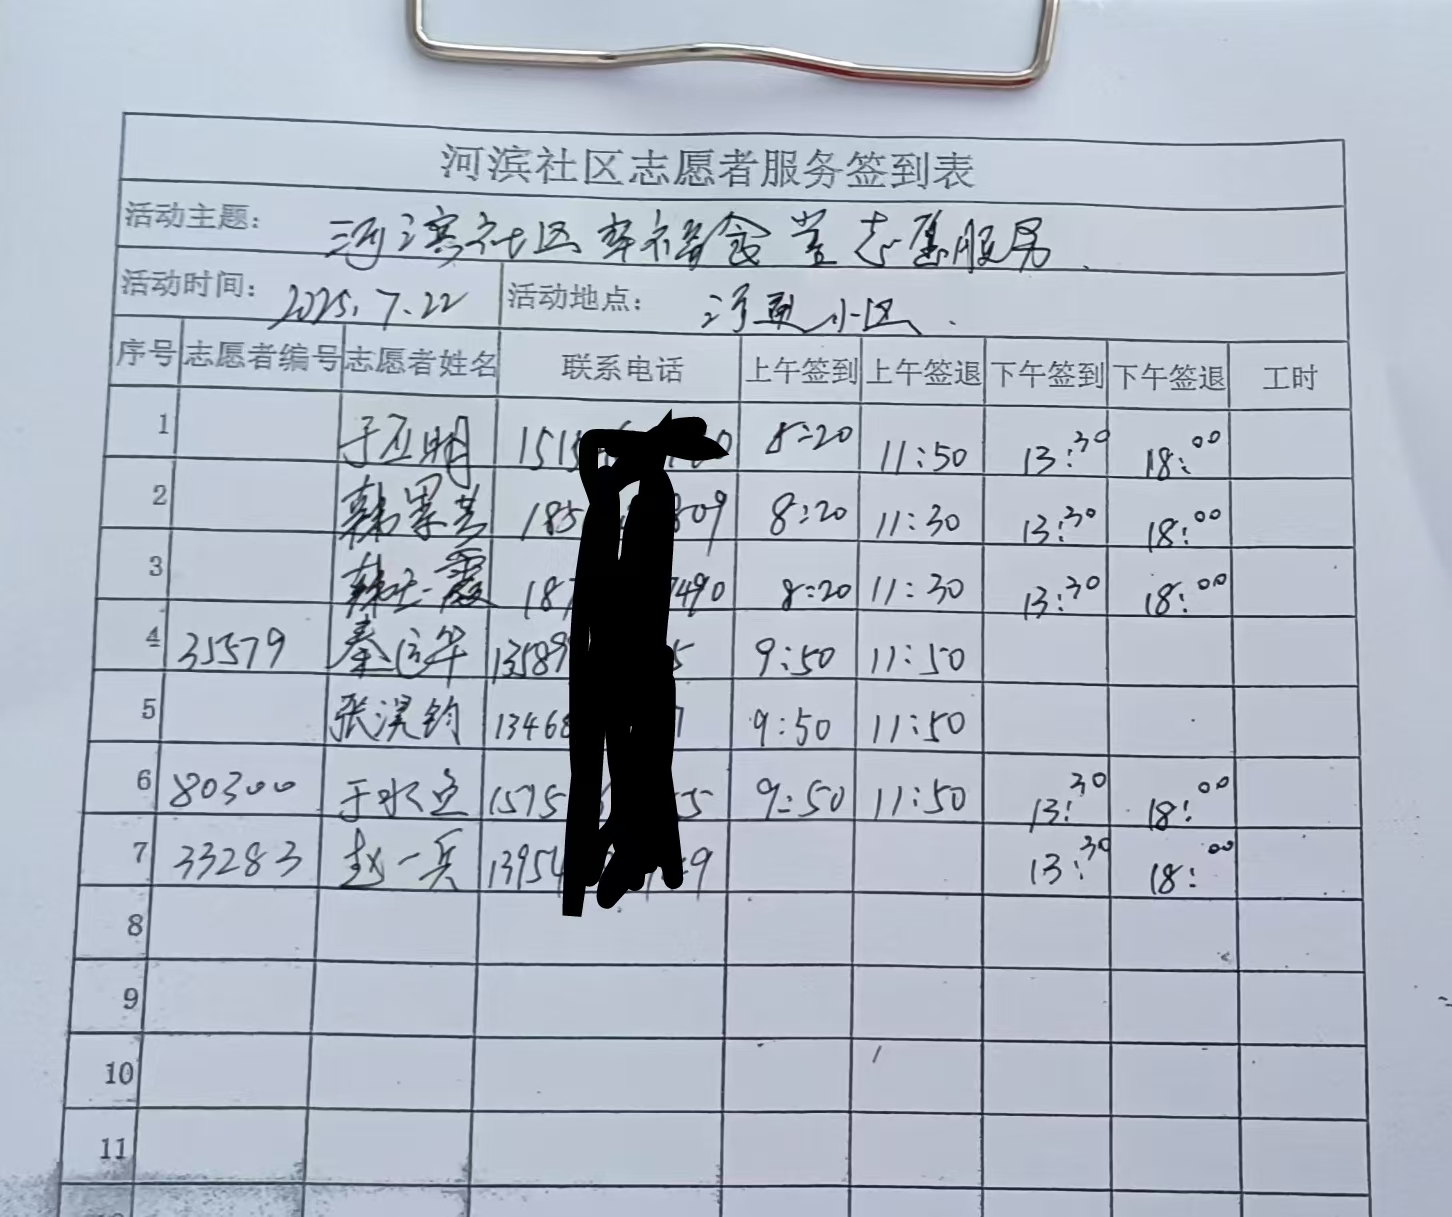 河滨社区志愿者服务签到表
活动主题： 河滨社区幸福食堂志愿服务
活动时间： 2025.7.22 活动地点： 小区
序号 志愿者编号 志愿者姓名 联系电话 上午签到 上午签退 下午签到 下午签退 工时
1 于 明 8:20 11:50 13:30 18:00
2 韩 8:20 11:30 13:30 18:00
3 韩 霞 8:20 11:30 13:30 18:00
4 35579 秦 华 9:50 11:50
5 张淏钧 9:50 11:50
6 80300 于水 9:50 11:50 13:30 18:00
7 33283 赵一兵 13:30 18:00
8
9
10
11